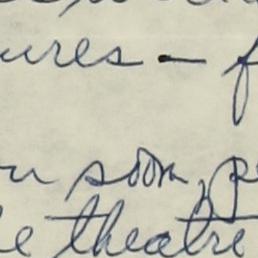 ures — f
u soon, p
e theatre